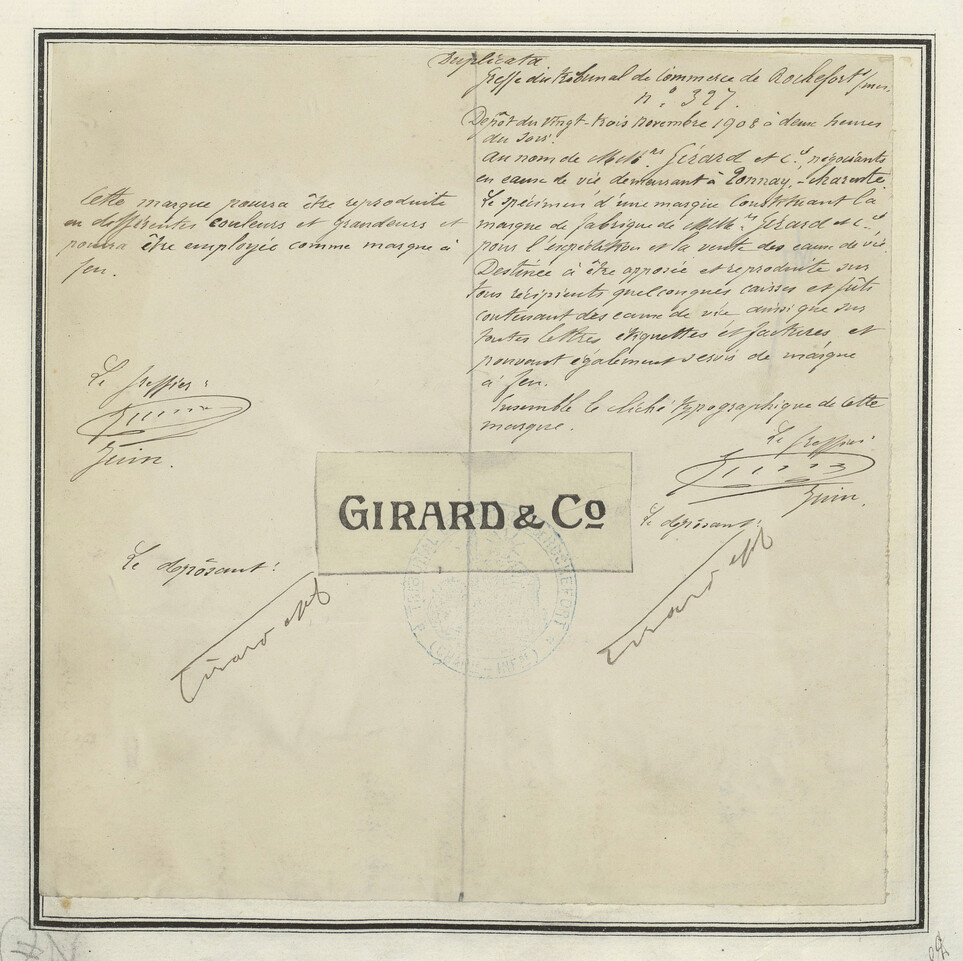 Duplicata
Greffe du Tribunal de Commerce de Rochefort s/mer.
n° 327.
Dépôt du vingt-trois novembre 1908 à deux heures
du soir.
Au nom de MM.rs Girard et Cie, négociants
en eaux de vie demeurant à Tonnay-Charente.
Le spécimen d'une marque constituant la
marque de fabrique de MM.rs Girard et Cie,
pour l'expédition et la vente des eaux de vie.
Destinée à être apposée et reproduite sur
tous récipients quelconques caisses et fûts
contenant des eaux de vie ainsi que sur
toutes lettres étiquettes et factures et
pouvant également servir de marque
à feu.
Ensemble le cliché typographique de cette
marque.
Le greffier:
Le déposant:
Cette marque pourra être reproduite
en différentes couleurs et grandeurs et
pourra être employée comme marque à
feu.
Le greffier:
Le déposant:
GIRARD & Co
Girard
Girard
TRIBUNAL
ROCHEFORT